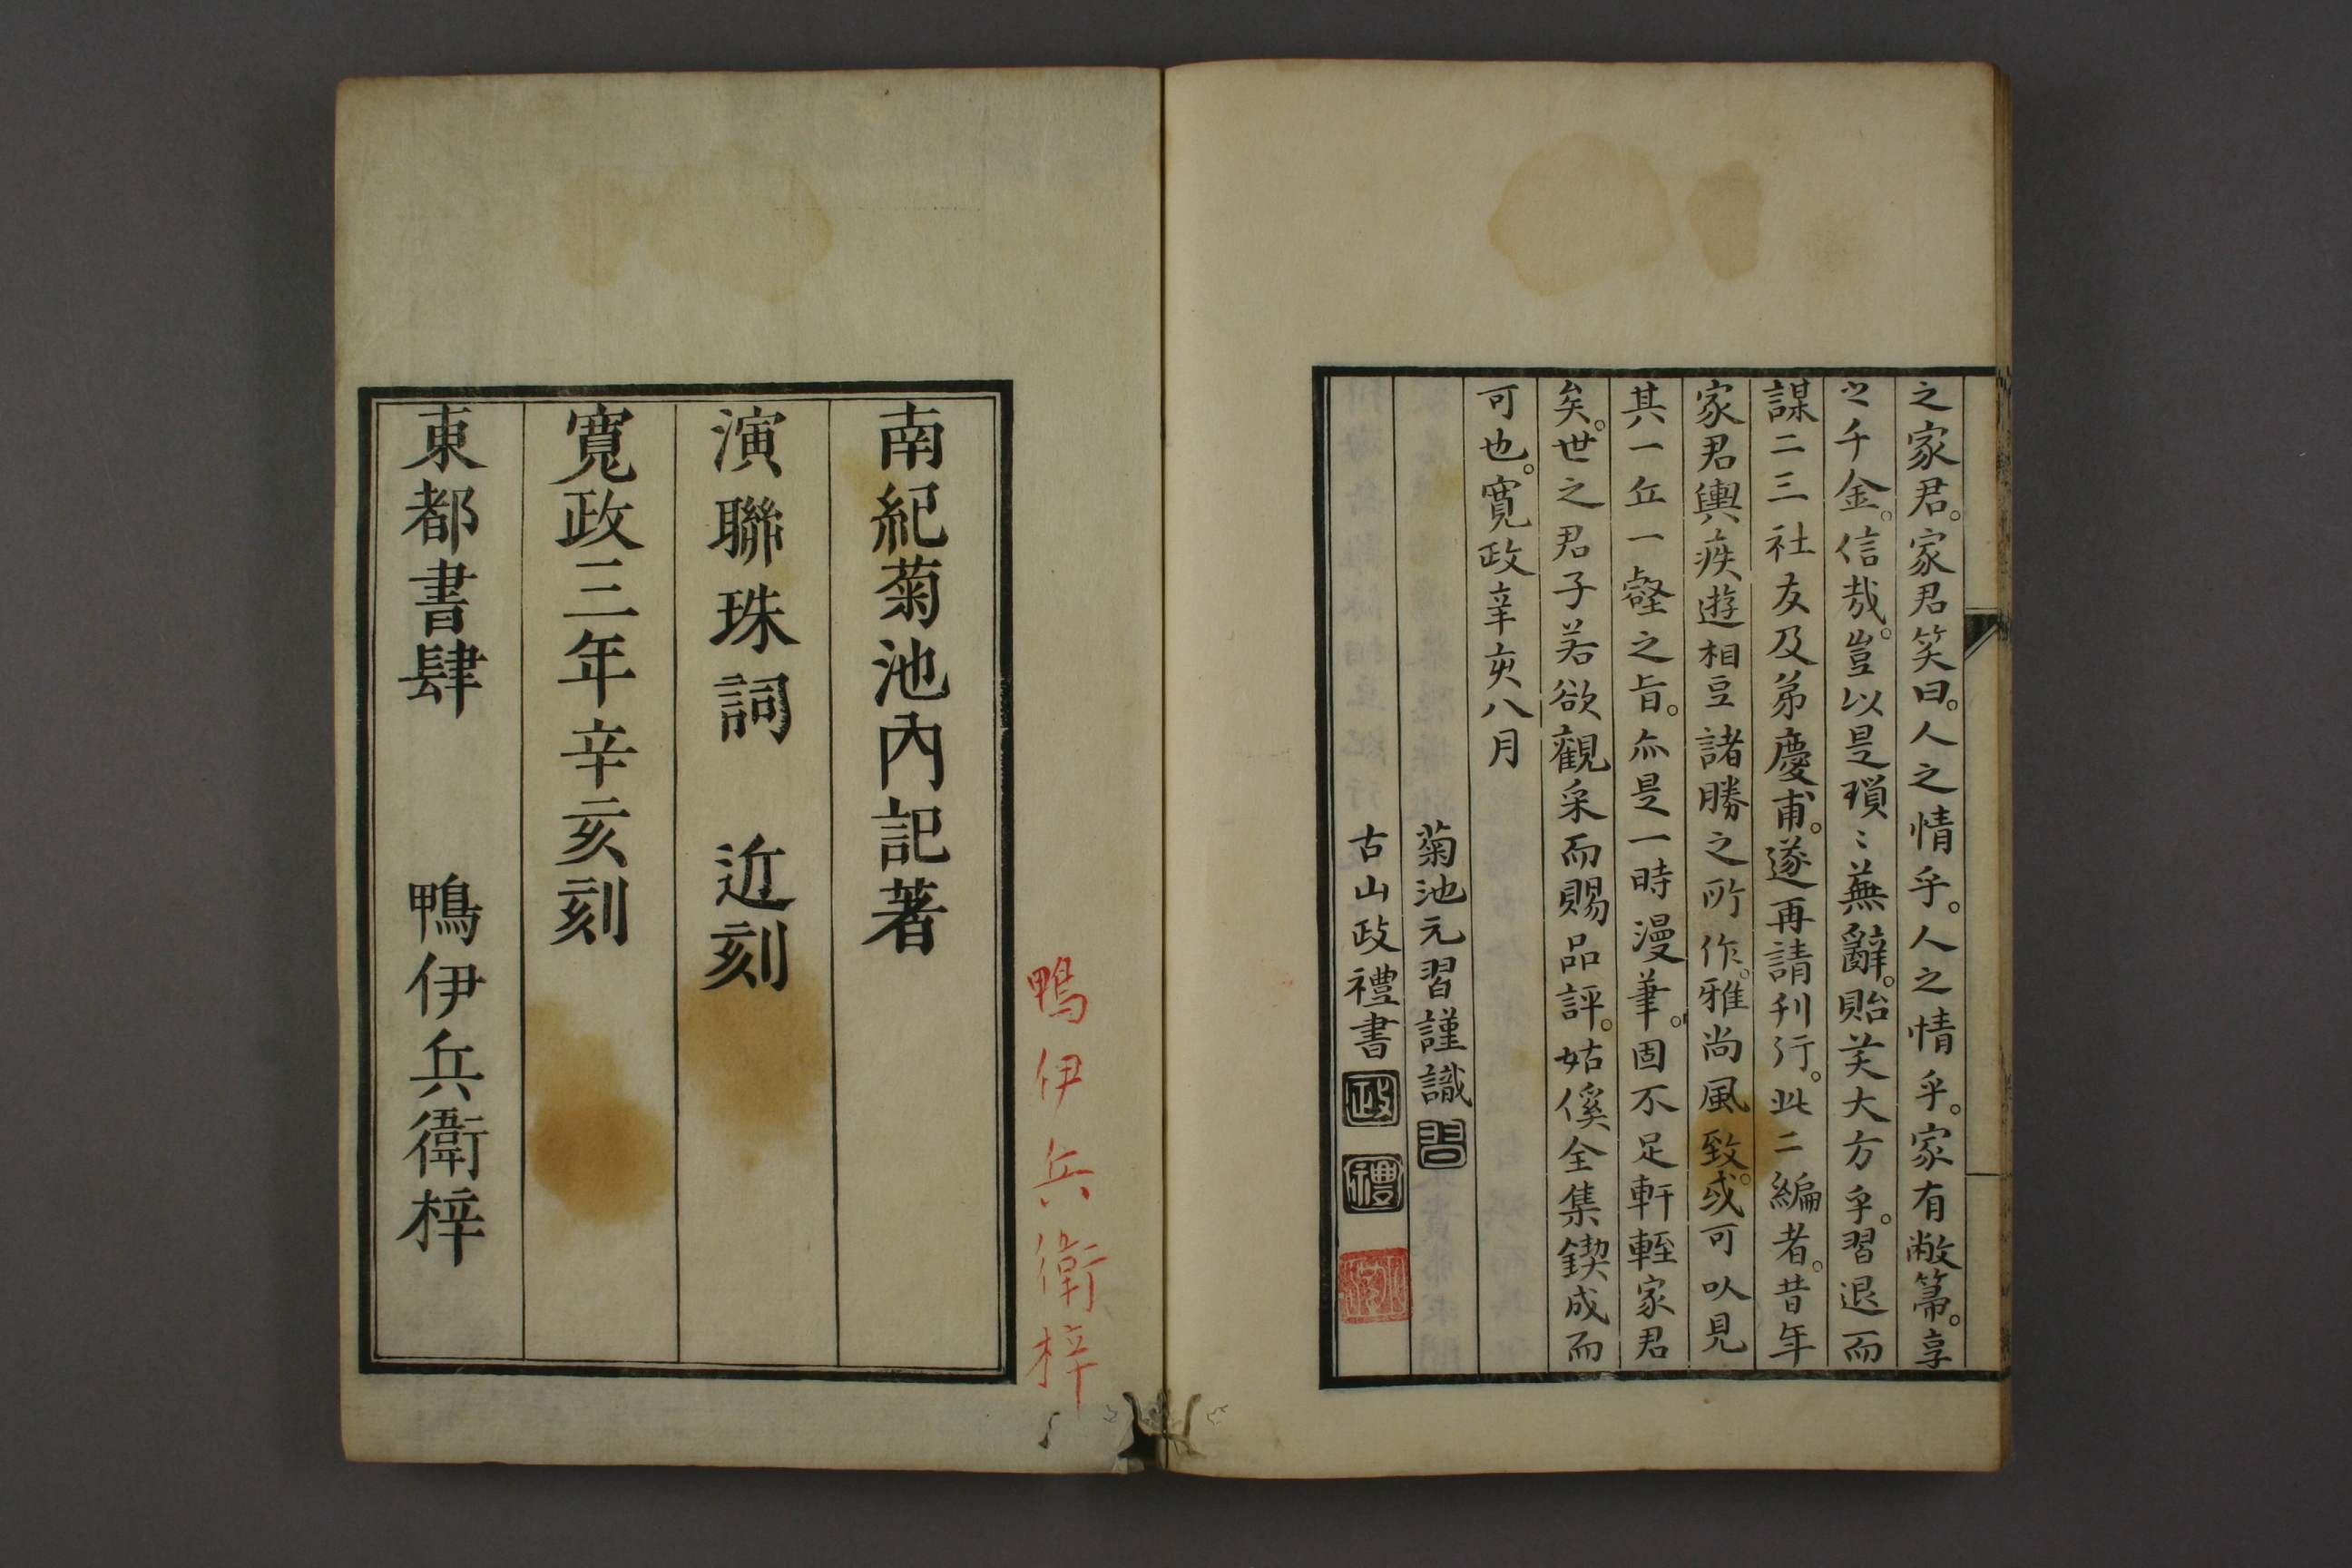 之家君。家君笑曰。人之情乎。人之情乎。家有敝箒。享
之千金。信哉。豈以是瑣〻蕪辭。貽笑大方乎。習退而
謀二三社友及弟慶甫。遂再請刊行。此二編者。昔年
家君輿疾遊相豆諸勝之所作。雅尚風致。或可以見
其一丘一壑之旨。亦是一時漫筆。固不足軒輊家君
矣。世之君子若欲觀采而賜品評。姑傒全集鍥成而
可也。寬政辛亥八月
菊池元習謹識 習
古山政禮書 政 禮
鴨伊兵衛梓
南紀菊池內記著
演聯珠詞 近刻
寬政三年辛亥刻
東都書肆 鴨伊兵衛梓